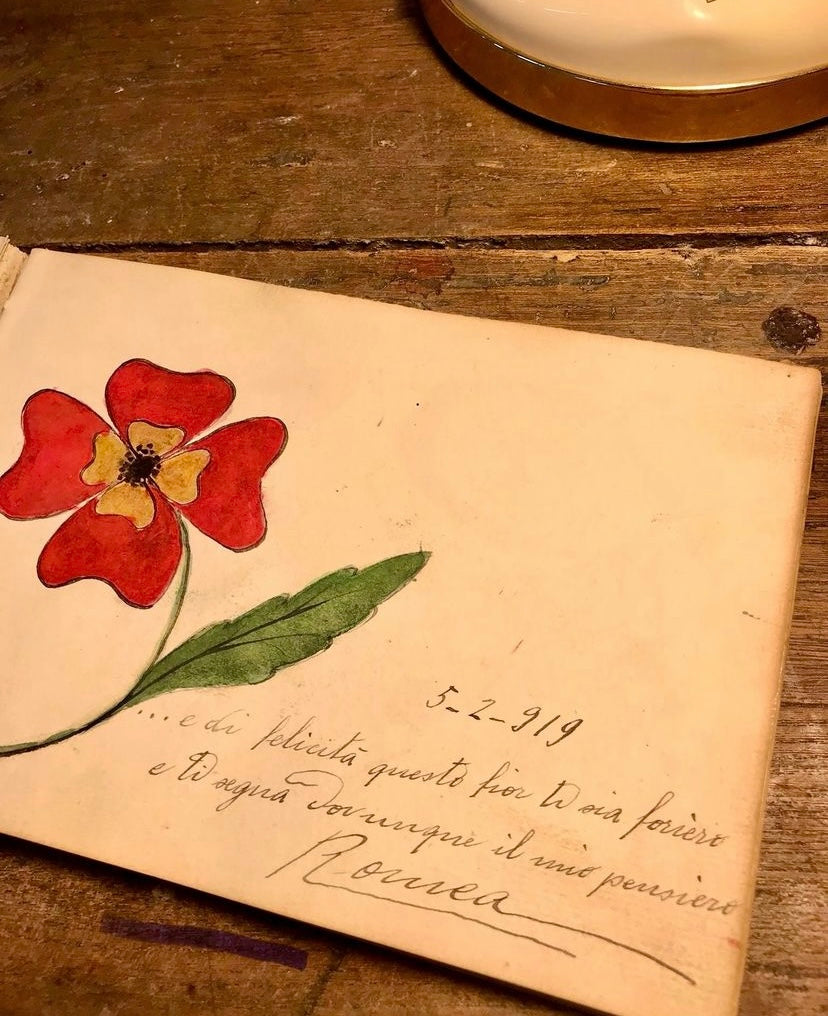 5-2-919
...e di felicità questo fior ti sia forièro
e ti segua dovunque il mio pensiero
Romea